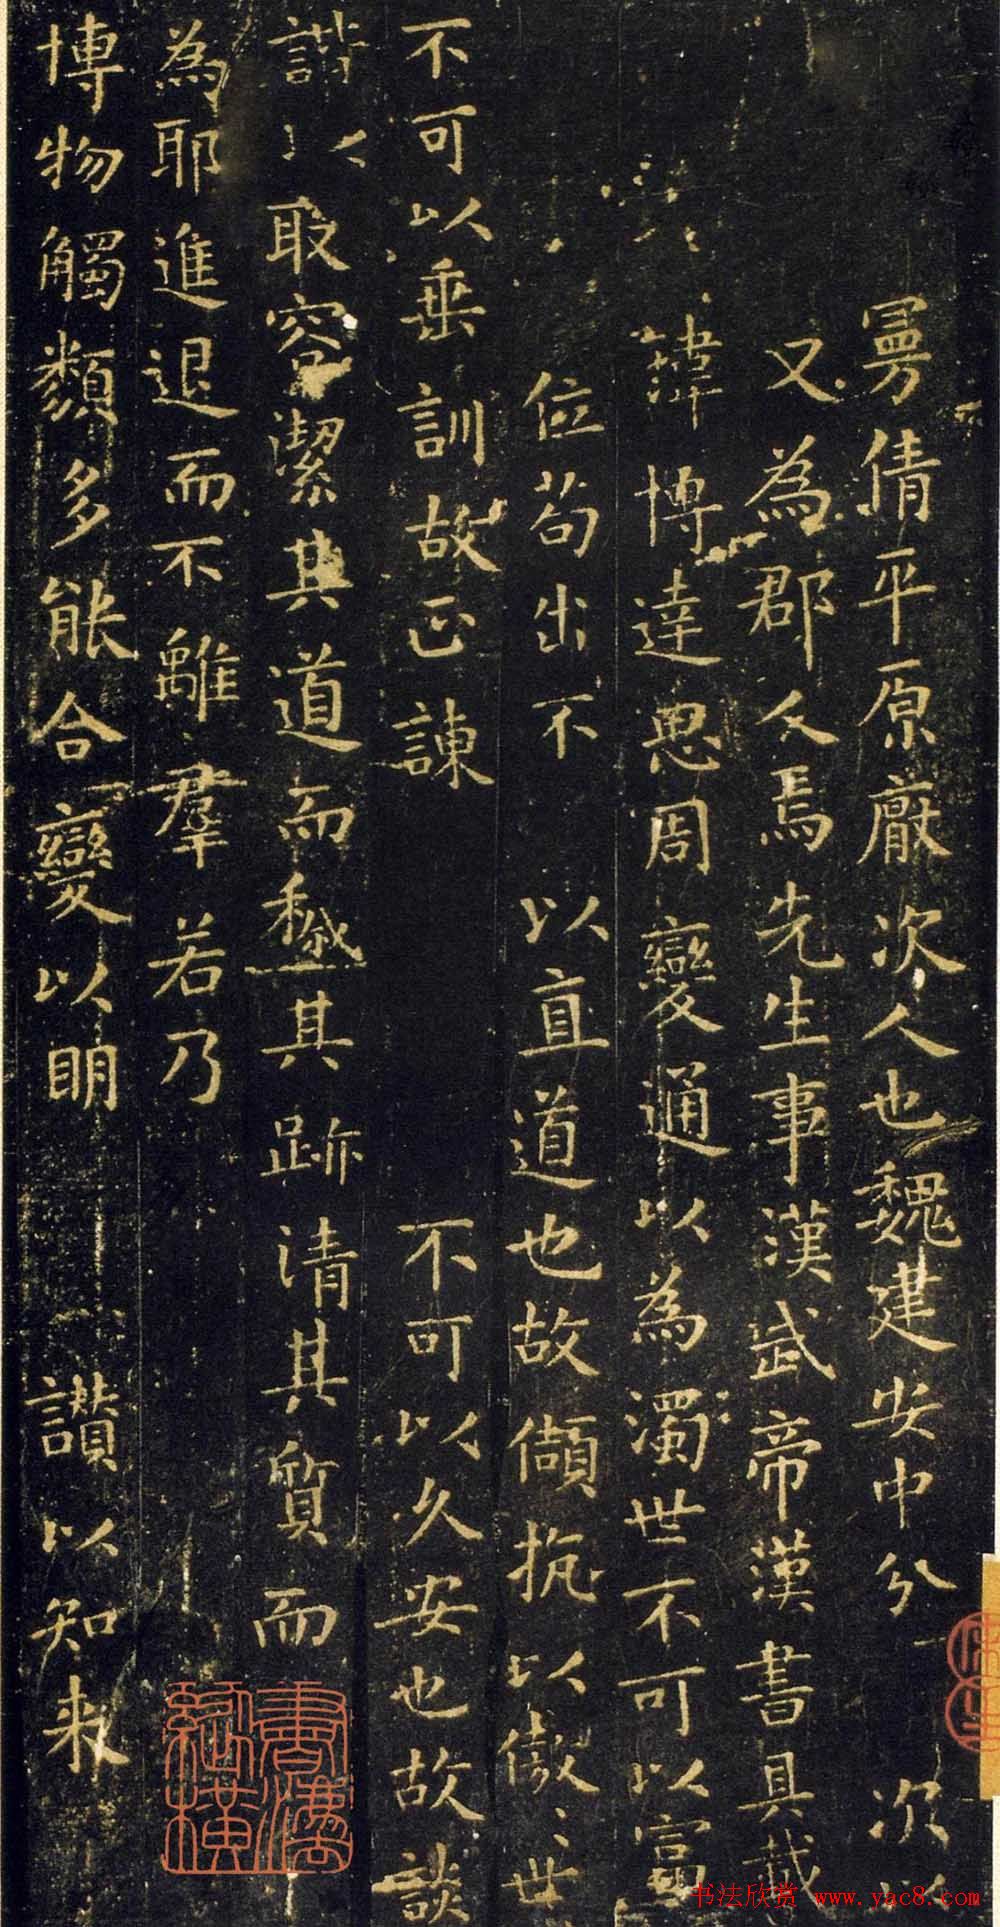 曼倩平原厭次人也魏建安中分 次以
又為郡人焉先生事漢武帝漢書具載
瑋博達思周變通以為濁世不可以富
位苟出不 以直道也故頡抗以傲世
不可以垂訓故正諫 不可以久安也故談
諧以取容潔其道而穢其跡清其質而
為耶進退而不離群若乃
博物觸類多能合變以明 讚以知來
書漢縱橫
书法欣赏 www.yac8.com